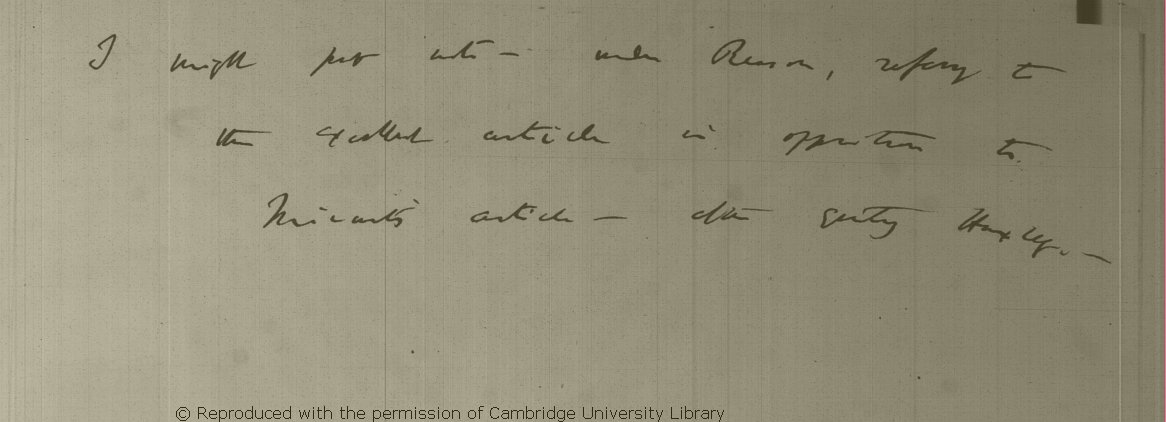 I might put note — under Reason, referring to
the excellent article in opposition to
Mivart's article — after quoting Huxley. —
© Reproduced with the permission of Cambridge University Library